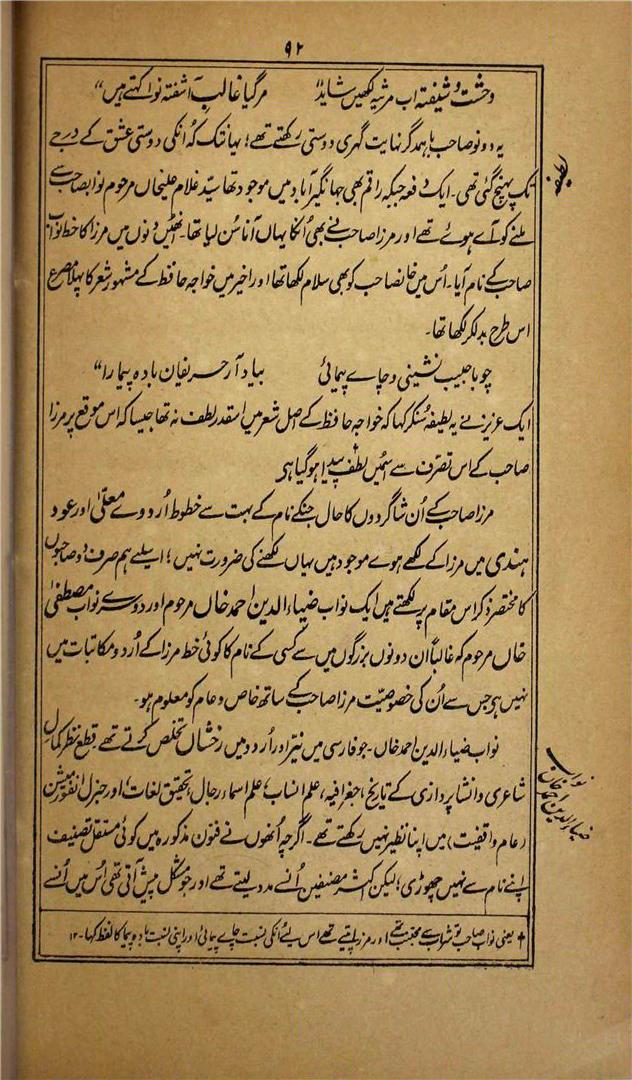 ۹۲
وحشت و شیفتہ اب مرثیہ لکھیں شاید مر گیا غالبِ آشفتہ نوا کہتے ہیں"
یہ دونو صاحب باہمدگر نہایت گہری دوستی رکھتے تھے؛ یہانتک کہ انکی دوستی عشق کے درجے
تک پہنچ گئی تھی۔ ایک دفعہ جبکہ راقم بھی جہانگیر آباد میں موجود تھا سیّد غلام علیخاں مرحوم نوابصاحب سے
ملنے کو آے ہوئے تھے اور مرزا صاحب نے بھی اُنکا یہاں آنا سُن لیا تھا۔ انھیں دنوں میں مرزا کا خط نواب
صاحب کے نام آیا۔ اُس میں خانصاحب کو بھی سلام لکھا تھا اور اخیر میں خواجہ حافظ کے مشہور شعر کا پہلا مصرع
اس طرح بدلکر لکھا تھا۔
چو با حبیب نشینی و چاے پیمائی بیاد آر حریفان بادہ پیما را"
ایک عزیز نے یہ لطیفہ سُنکر کہا کہ خواجہ حافظ کے اصل شعر میں اسقدر لطف نہ تھا جیسا کہ اس موقع پر مرزا
صاحب کے اس تصرف سے اسمیں لطف پیدا ہو گیا ہی
مرزا صاحب کے اُن شاگردوں کا حال جنکے نام کے بہت سے خطوط اُردوے معلّیٰ اور عود
ہندی میں مرزا کے لکھے ہوے موجود ہیں یہاں لکھنے کی ضرورت نہیں؛ اسلیے ہم صرف دو صاحبوں
کا مختصر ذکر اس مقام پر لکھتے ہیں ایک نواب ضیاء الدین احمد خاں مرحوم اور دوسرے نواب مصطفیٰ
خاں مرحوم کہ غالباً ان دونوں بزرگوں میں سے کسی کے نام کا کوئی خط مرزا کے اُردو مکاتبات میں
نہیں ہی جس سے اُن کی خصوصیّت مرزا صاحب کے ساتھ خاص و عام کو معلوم ہو۔
نواب ضیاء الدین احمد خاں۔ جو فارسی میں نیّر اور اُردو میں رخشاں تخلص کرتے تھے قطع نظر کمالِ
شاعری و انشا پردازی کے تاریخ، جغرافیہ، علم انساب، علم اسماء رجال، تحقیق لغات، اور جنرل انفورمیشن
(عام واقفیت) میں اپنا نظیر نہیں رکھتے تھے۔ اگرچہ اُنھوں نے فنون مذکورہ میں کوئی مستقل تصنیف
اپنے نام سے نہیں چھوڑی؛ لیکن اکثر مصنفین اُنسے مدد لیتے تھے اور جو مشکل پیش آتی تھی اُس میں اُنسے
† یعنی نواب صاحب تو شراب سے مجتنب تھے اور مرزا پیتے تھے اس لئے انکی نسبت چاے پیمائی اور اپنی نسبت بادہ پیما کا لفظ کہا۔ ۱۲
لطیفہ
نواب
ضیاء الدین احمد خاں